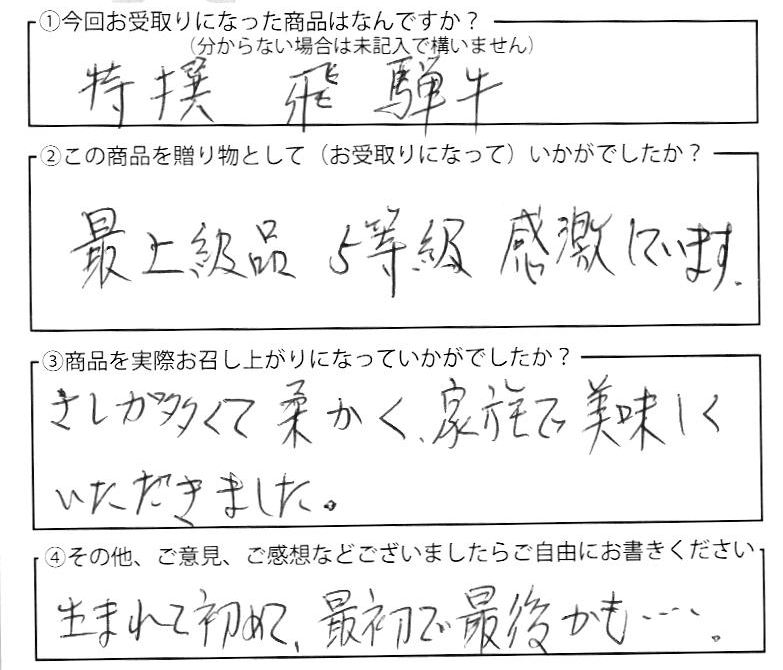 ①今回お受取りになった商品はなんですか？
（分からない場合は未記入で構いません）
特撰 飛騨牛
②この商品を贈り物として（お受取りになって）いかがでしたか？
最上級品 5等級 感激しています.
③商品を実際お召し上がりになっていかがでしたか？
さしが多くて柔かく、家族で美味しく
いただきました。
④その他、ご意見、ご感想などございましたらご自由にお書きください
生まれて初めて、最初で最後かも……。